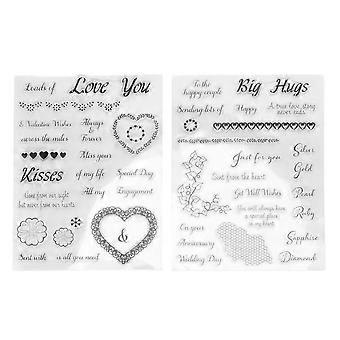 Loads of Love You
A Valentine Wishes
across the miles
Always
&
Forever
Miss your
Kisses
of my life
Special Day
All my
Engagement
Gone from our sight
but never from our hearts
&
Sent with
is all you need
To the
happy couple
Big Hugs
Sending lots of
Happy
A true love story
never ends
Just for you
Silver
Gold
Sent from the heart
Get Well Wishes
Pearl
You will always have
a special place
in my heart
Ruby
On your
Anniversary
Wedding Day
Sapphire
Diamond